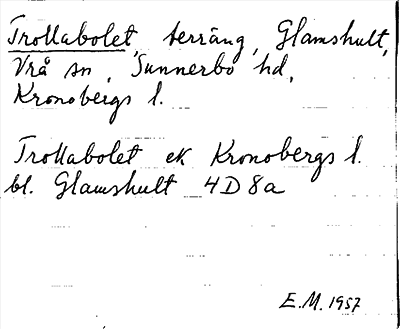 Trollabolet, terräng, Glamshult,
Vrå sn, Sunnerbo hd,
Kronobergs l.
Trollabolet ek Kronobergs l.
bl. Glamshult 4D8a
E.M. 1957